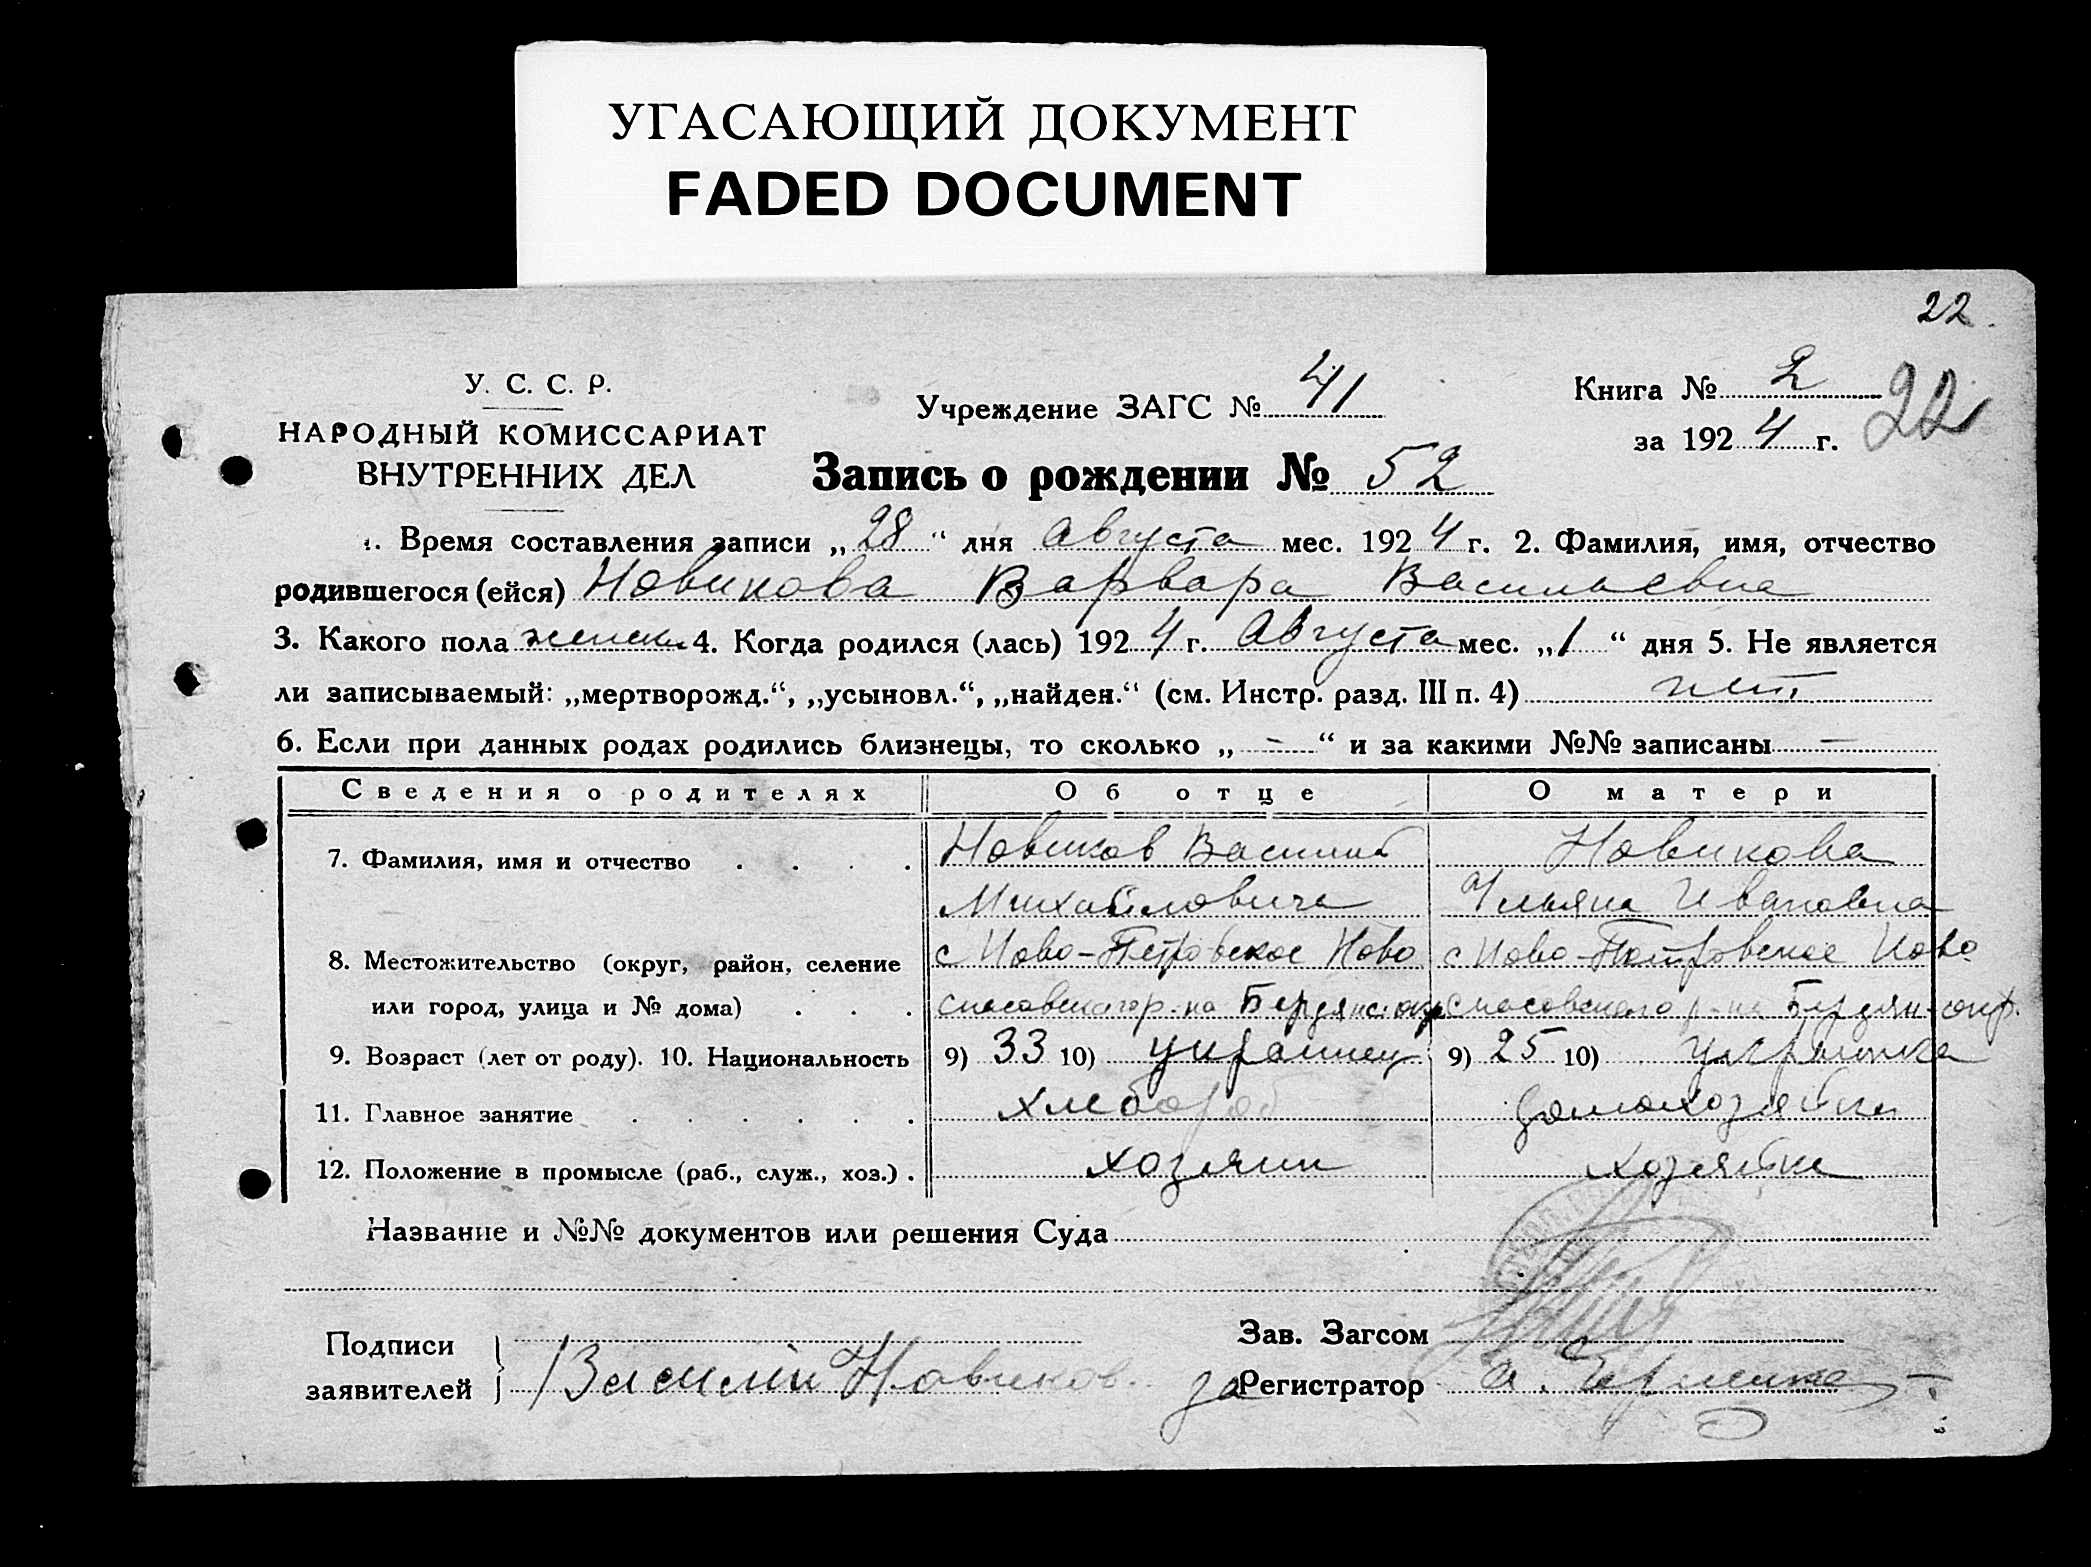 УГАСАЮЩИЙ ДОКУМЕНТ
FADED DOCUMENT
22.
У. С. С. Р.
НАРОДНЫЙ КОМИССАРИАТ
ВНУТРЕННИХ ДЕЛ
Учреждение ЗАГС № 41
Книга № 2
за 1924 г.
22
Запись о рождении № 52
1. Время составления записи „28“ дня Августа мес. 1924 г. 2. Фамилия, имя, отчество
родившегося (ейся) Новикова Варвара Васильевна
3. Какого пола женск. 4. Когда родился (лась) 1924 г. Августа мес. „1“ дня 5. Не является
ли записываемый: „мертворожд.“, „усыновл.“, „найден.“ (см. Инстр. разд. III п. 4) нет.
6. Если при данных родах родились близнецы, то сколько „ - “ и за какими №№ записаны —
Сведения о родителях Об отце О матери
7. Фамилия, имя и отчество . . . . Новиков Василий Новикова
Михайловича Ульяна Ивановна
8. Местожительство (округ, район, селение с Ново-Петровское Ново с Ново-Петровское Ново
или город, улица и № дома) . . . спасовского р-на Бердянс. окр спасовского р-на Бердян. окр.
9. Возраст (лет от роду). 10. Национальность 9) 33 10) украинец 9) 25 10) украинка
11. Главное занятие . . . . . . хлебороб домохозяйка
12. Положение в промысле (раб., служ., хоз.) . хозяин хозяйка
Название и №№ документов или решения Суда
Подписи
заявителей
Василий Новиков.
Зав. Загсом
за Регистратор